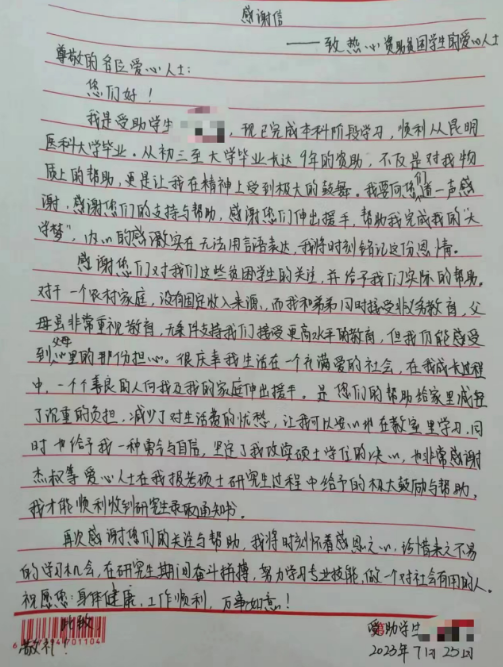 感谢信
——致热心资助贫困学生的爱心人士
尊敬的各位爱心人士:
您们好!
我是受助学生 ,现已完成本科阶段学习,顺利从昆明
医科大学毕业。从初三至大学毕业长达9年的资助,不仅是对我物
质上的帮助,更是让我在精神上受到极大的鼓舞。我要向您们道一声感
谢,感谢您们的支持与帮助,感谢您们伸出援手,帮助我完成我的"大
学梦",内心的感激实在无法用言语表达,我将时刻铭记这份恩情。
感谢您们对我们这些贫困学生的关注,并给予我们实际的帮助。
对于一个农村家庭,没有固定收入来源,而我和弟弟同时接受非义务教育,父
母虽非常重视教育,无条件支持我们接受更高水平的教育,但我仍能感受
到父母心里的那份担心。很庆幸我生活在一个充满爱的社会,在我成长过程
中,一个个善良的人向我及我的家庭伸出援手。是您们的帮助给家里减轻
了沉重的负担,减少了对生活费的忧愁,让我可以安心地在教室里学习,同
时也给予我一种勇气与自信,坚定了我攻读硕士学位的决心,也非常感谢
杰叔等爱心人士在我报考硕士研究生过程中给予的极大鼓励与帮助,
我才能顺利收到研究生录取通知书。
再次感谢您们的关注与帮助,我将时刻怀着感恩之心,珍惜来之不易
的学习机会,在研究生期间奋斗拼搏,努力学习专业技能,做一个对社会有用的人。
祝愿您:身体健康,工作顺利,万事如意!
此致
敬礼!
受助学生
2023年7月25日